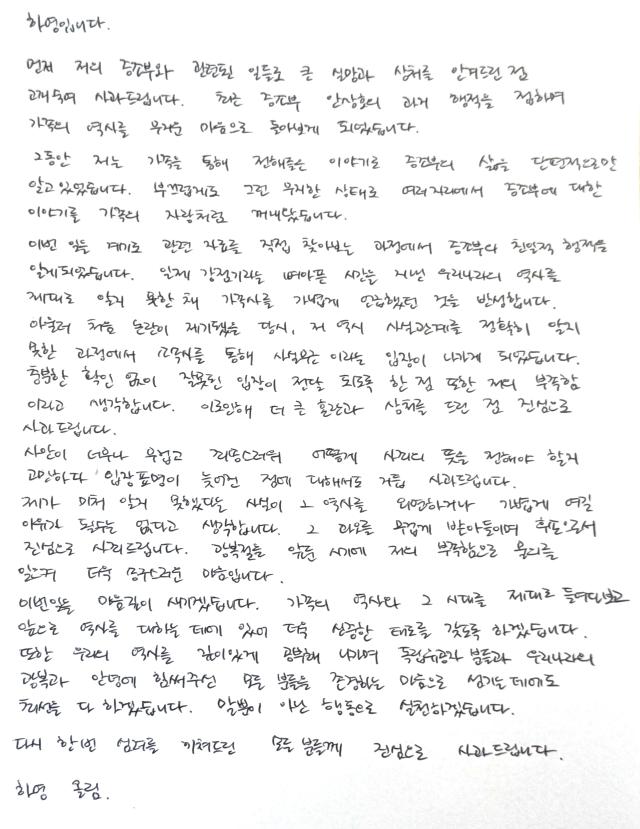 하영입니다.
먼저 저의 증조부와 관련된 일들로 큰 실망과 상처를 안겨드린 점
고개숙여 사과드립니다. 최근 증조부 안상호의 과거 행적을 접하며
가족의 역사를 무거운 마음으로 돌아보게 되었습니다.
그동안 저는 가족을 통해 전해들은 이야기로 증조부의 삶을 단편적으로만
알고있었습니다. 부끄럽게도 그런 무지한 상태로 여러자리에서 증조부에 대한
이야기를 가족의 자랑처럼 꺼내왔습니다.
이번 일을 계기로 관련 자료를 직접 찾아보는 과정에서 증조부의 친일적 행적을
알게되었습니다. 일제 강점기라는 뼈아픈 시간을 지나온 우리나라의 역사를
제대로 알지 못한 채 가족사를 가볍게 언급했던 것을 반성합니다.
아울러 처음 논란이 제기됐을 당시, 저 역시 사실관계를 정확히 알지
못한 과정에서 소속사를 통해 사실무근 이라는 입장이 나가게 되었습니다.
충분한 확인 없이 잘못된 입장이 전달 되도록 한 점 또한 저의 부족함
이라고 생각합니다. 이로인해 더 큰 혼란과 상처를 드린 점 진심으로
사과드립니다.
사안이 너무나 무겁고 죄송스러워 어떻게 사죄의 뜻을 전해야 할지
고민하다 입장표명이 늦어진 점에 대해서도 거듭 사과드립니다.
제가 미처 알지 못했다는 사실이 그 역사를 외면하거나 가볍게 여길
이유가 될수는 없다고 생각합니다. 그 과오를 무겁게 받아들이며 후손으로서
진심으로 사죄드립니다. 광복절을 앞둔 시기에 저의 부족함으로 물의를
일으켜 더욱 송구스러운 마음입니다.
이번일을 마음깊이 새기겠습니다. 가족의 역사와 그 시대를 제대로 들여다보고
앞으로 역사를 대하는 데에 있어 더욱 신중한 태도를 갖도록 하겠습니다.
또한 우리의 역사를 깊이있게 공부해 나가며 독립유공자 분들과 우리나라의
광복과 안녕에 힘써주신 모든 분들을 존경하는 마음으로 섬기는데에도
최선을 다 하겠습니다. 말뿐이 아닌 행동으로 실천하겠습니다.
다시 한번 심려를 끼쳐드린 모든 분들께 진심으로 사과드립니다.
하영 올림.